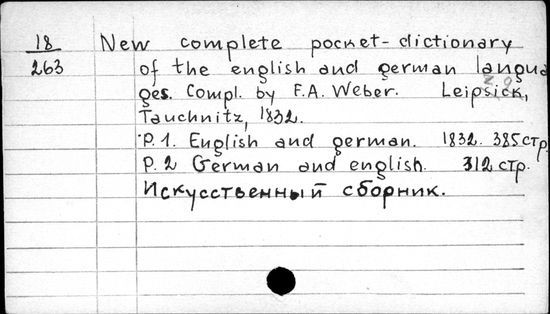 18 New complete pocket-dictionary
263 of the english and german langua
ges. Compl. by F.A. Weber. Leipsick,
Tauchnitz, 1832.
P. 1. English and german. 1832. 385 стр.
P. 2 German and english. 312 стр.
Искусственный сборник.